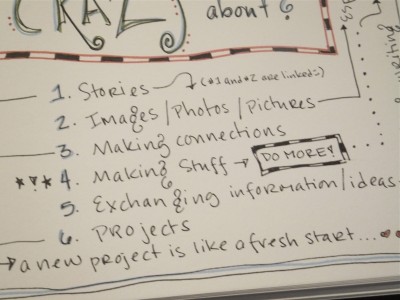 CRAZY
about?
1. Stories (*1 and *2 are linked!)
2. Images/Photos/Pictures
3. Making connections
4. Making Stuff → DO MORE!
5. Exchanging information/ideas
6. PROjects
→ a new project is like a fresh start...